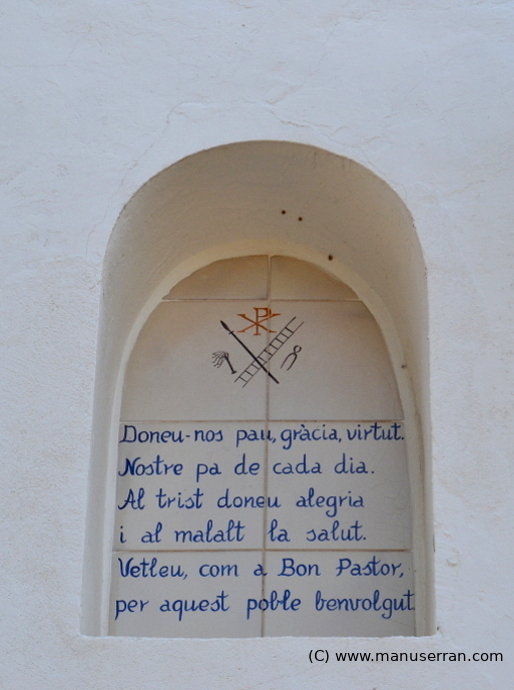 Doneu-nos pau, gràcia, virtut.
Nostre pa de cada dia.
Al trist doneu alegria
i al malalt la salut.
Vetleu, com a Bon Pastor,
per aquest poble benvolgut.
(C) www.manuserran.com